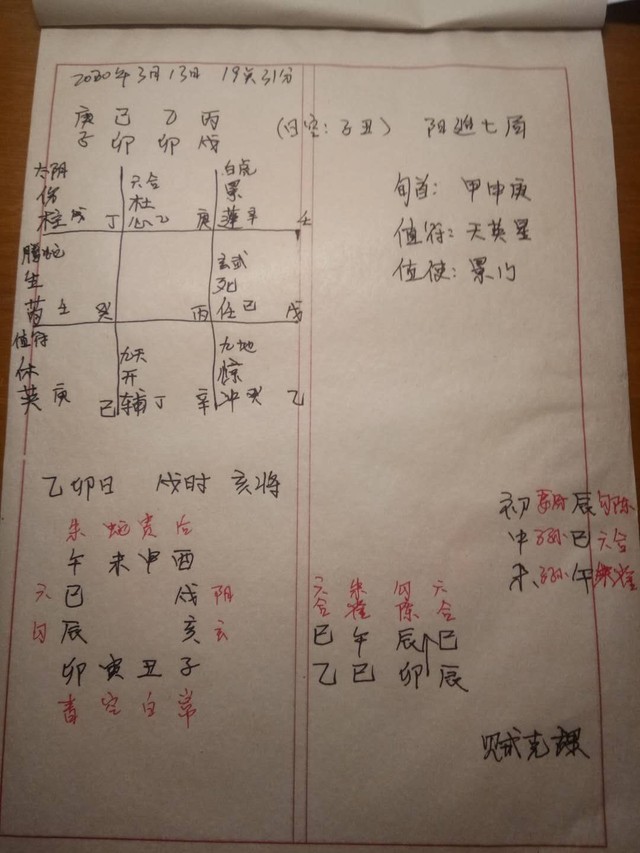 2020年3月13日 19点31分
庚 己 乙 丙
子 卯 卯 戌
(旬空:子丑) 阳遁七局
旬首:甲申庚
值符:天英星
值使:景门
太阴 六合 白虎
伤 杜 景
柱 戊 丁 心 乙 庚 蓬 辛 壬
腾蛇 玄武
生 死
芮 壬 癸 丙 任 己 戊
值符 九天 九地
休 开 惊
英 庚 己 辅 丁 辛 冲 癸 乙
乙卯日 戌时 亥将
朱 蛇 贵 后
午 未 申 酉
六 巳 戌 阴
勾 辰 亥 玄
卯 寅 丑 子
青 空 白 常
初 辰 勾陈
中 子孙 巳 六合
末 子孙 午 朱雀
六合 朱雀 勾陈 六合
巳 午 辰 巳
乙 巳 卯 辰
贼克课